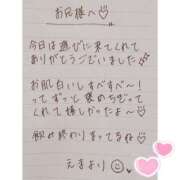 お兄様へ
今日は遊びに来てくれて
ありがとうございました
お肌白いしすべすべ〜！
ってずっと褒めちぎって
くれて嬉しかったよ〜
飲み終わりまってるね
えまより